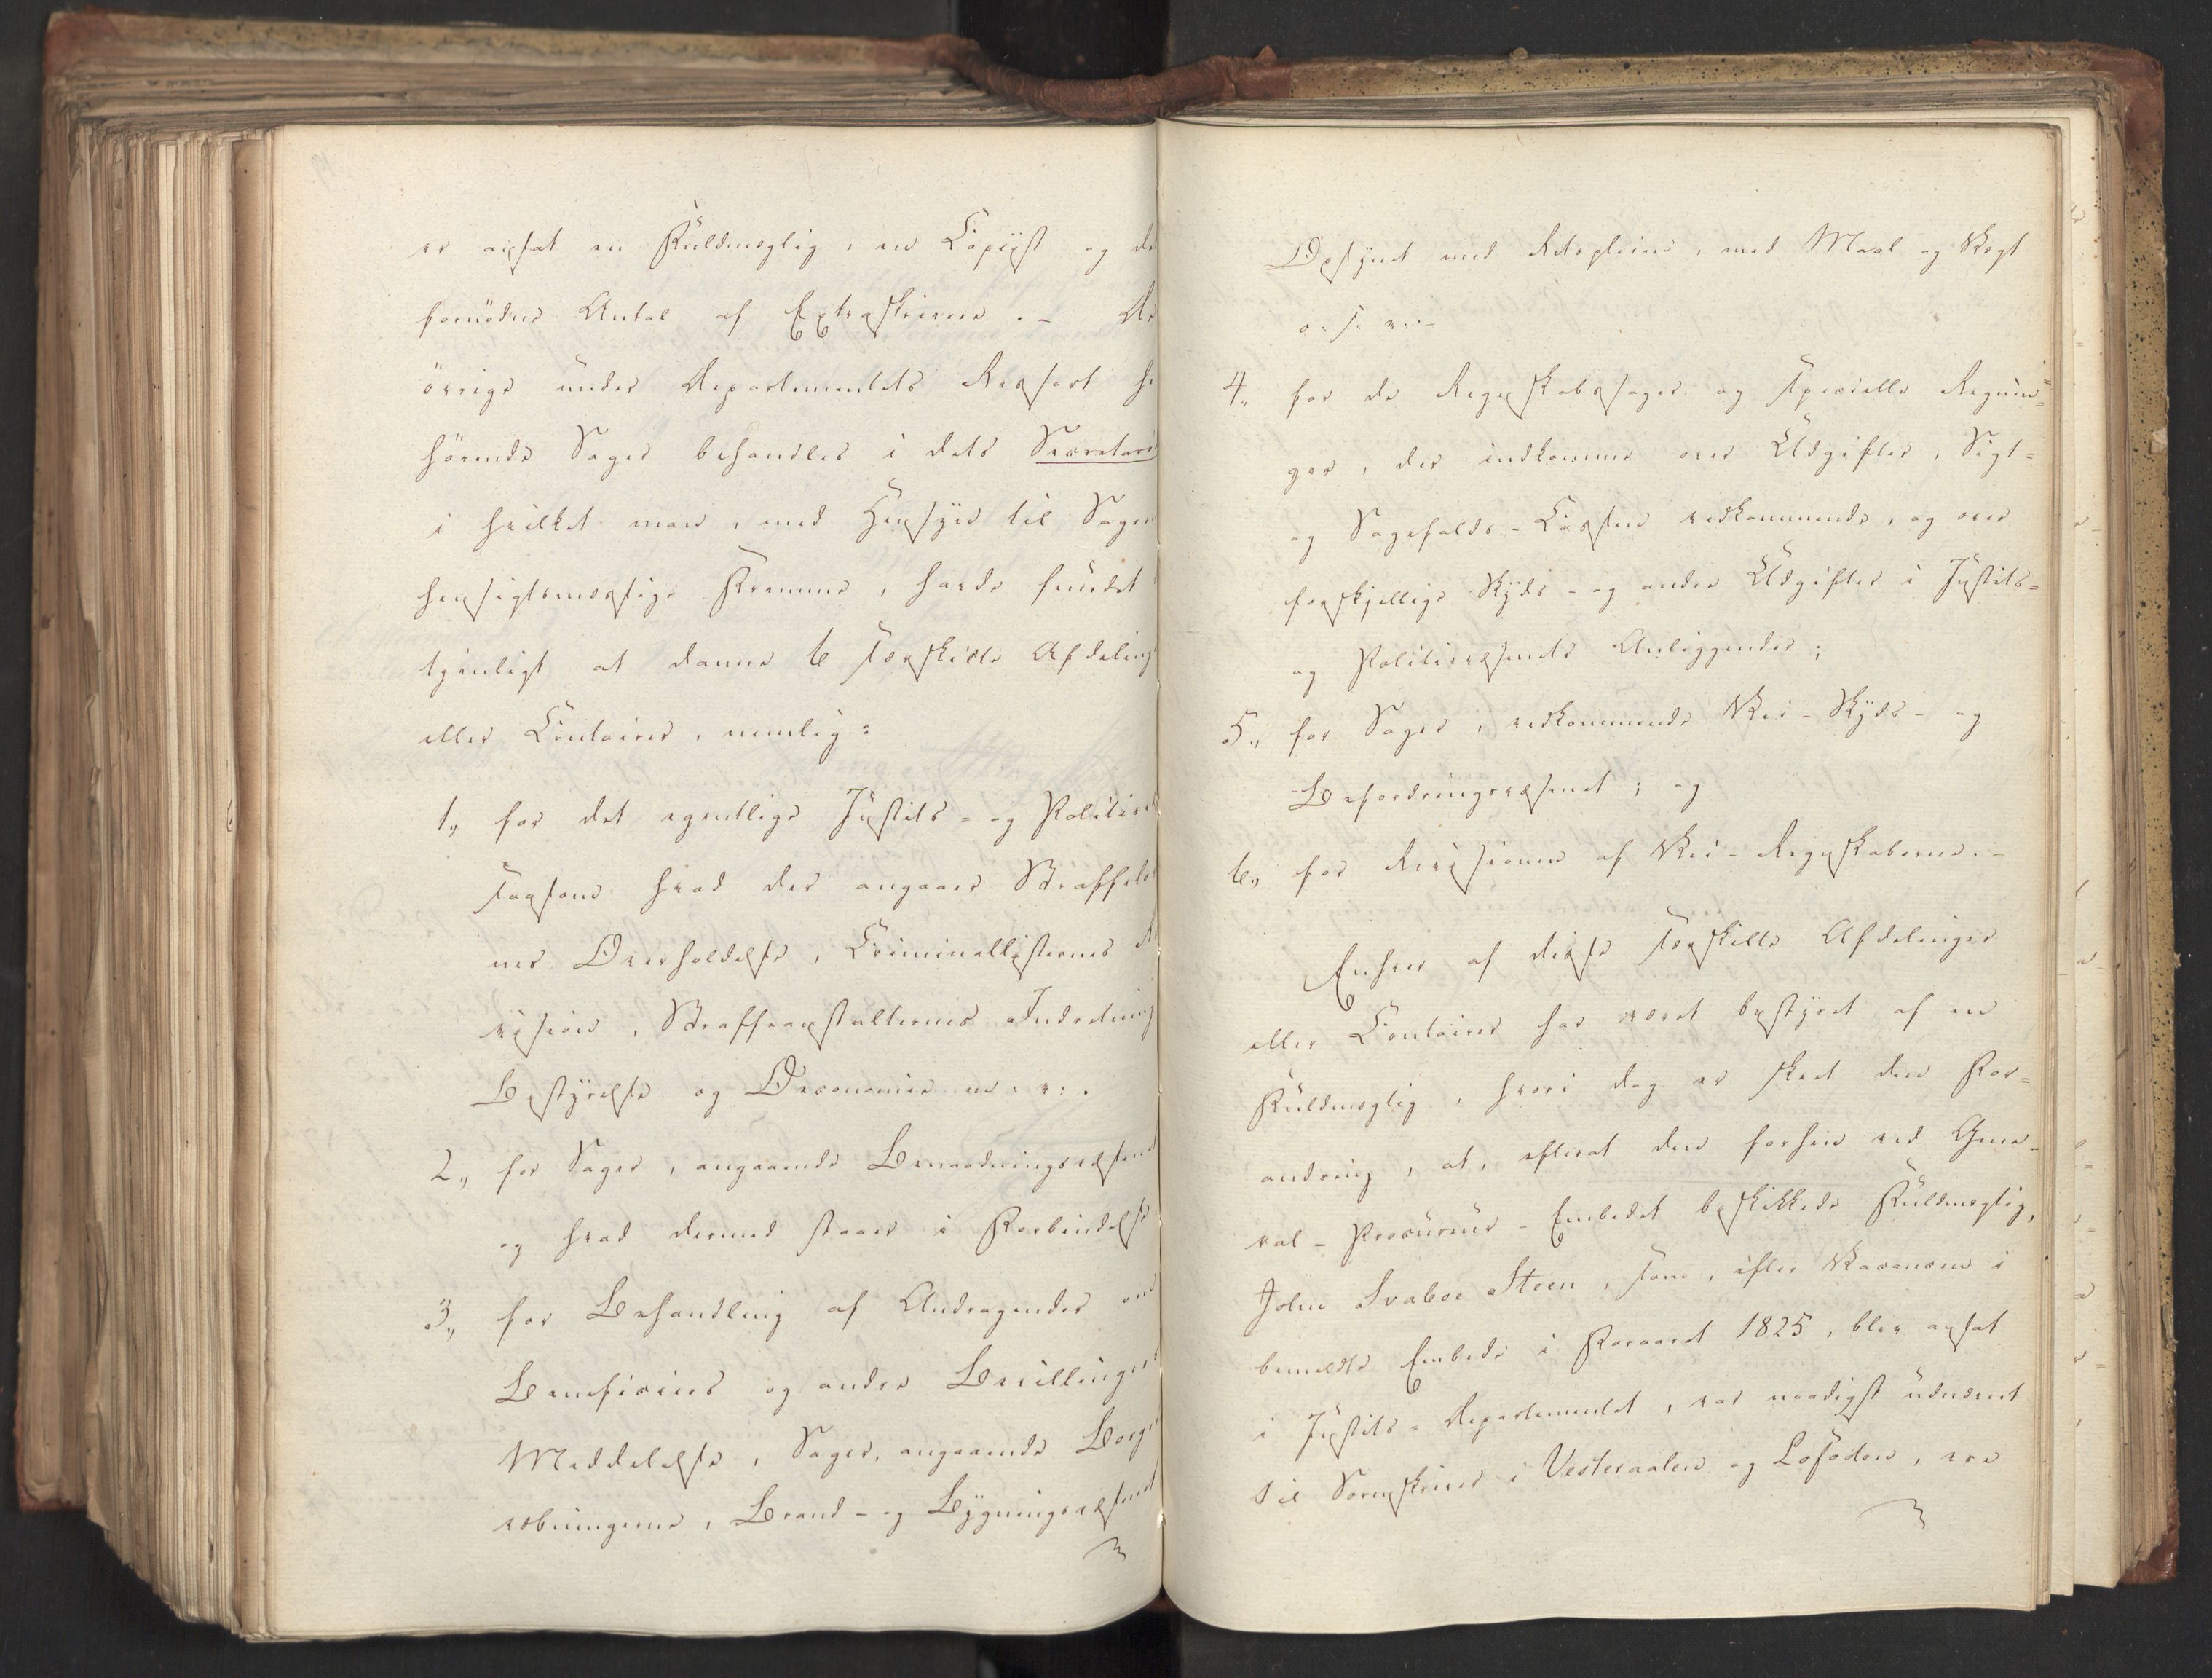 er ansat en Fuldmægtig, en Copiist og de
fornødne Antal af Extraskrivere. – De
övrige under Departementets Ressort hen
hörende Sager behandles i dets Secretari
i hvilket man, med Hensyn til Sager
hensigtsmæssige Fremme, havde fundet
tjenligt at danne 6 særskilte Afdeling
eller Contoirer, nemlig:
1., for det egentlige Justits- og Politie
saasom hvad der angaaer Straffelo
nes Overholdelse, Criminallisternes Re
vision, Straffeanstalternes Indretning
Bestyrelse og Oeconomie m: v:.
2., for Sager, angaaende Benaadningsvæsenet
og hvad dermed staaer i Forbindelse
3., for Behandling af Andragender om
Beneficier og andre Bevillingers
Meddelelse, Sager, angaaende Borge
væbningerne, Brand- og Bygningsvæsenet
Opsynet med Retspleien, med Maal og Vægt
o: s: v:–
4., for de Regnskabssager og specielle Regnin=
ger, der indkomme over Udgifter, Sigt=
og Sagefalds-Cassen vedkommende, og over
forskjellige Skyds- og andre Udgifter i Justits=
og Politievæsenets Anliggender;
5., for Sager, vedkommende Vei- Skyds- og
Befordringsvæsenet; og
6., for Revisionen af Vei-Regnskaberne.–
Enhver af disse særskilte Afdelinger
eller Contoirer har været bestyret af en
Fuldmægtig, hvori dog er skeet den For=
andring, at, efterat den forhen ved Gene-
ral-Procureur-Embedet beskikkede Fuldmægtig,
John Svaboe Steen, som, efter Vacancen i
bemeldte Embede i Foraaret 1825, blev ansat
i Justits-Departementet, var naadigst udnævnt
til Sorenskriver i Vesteraalen og Lofoden, ere